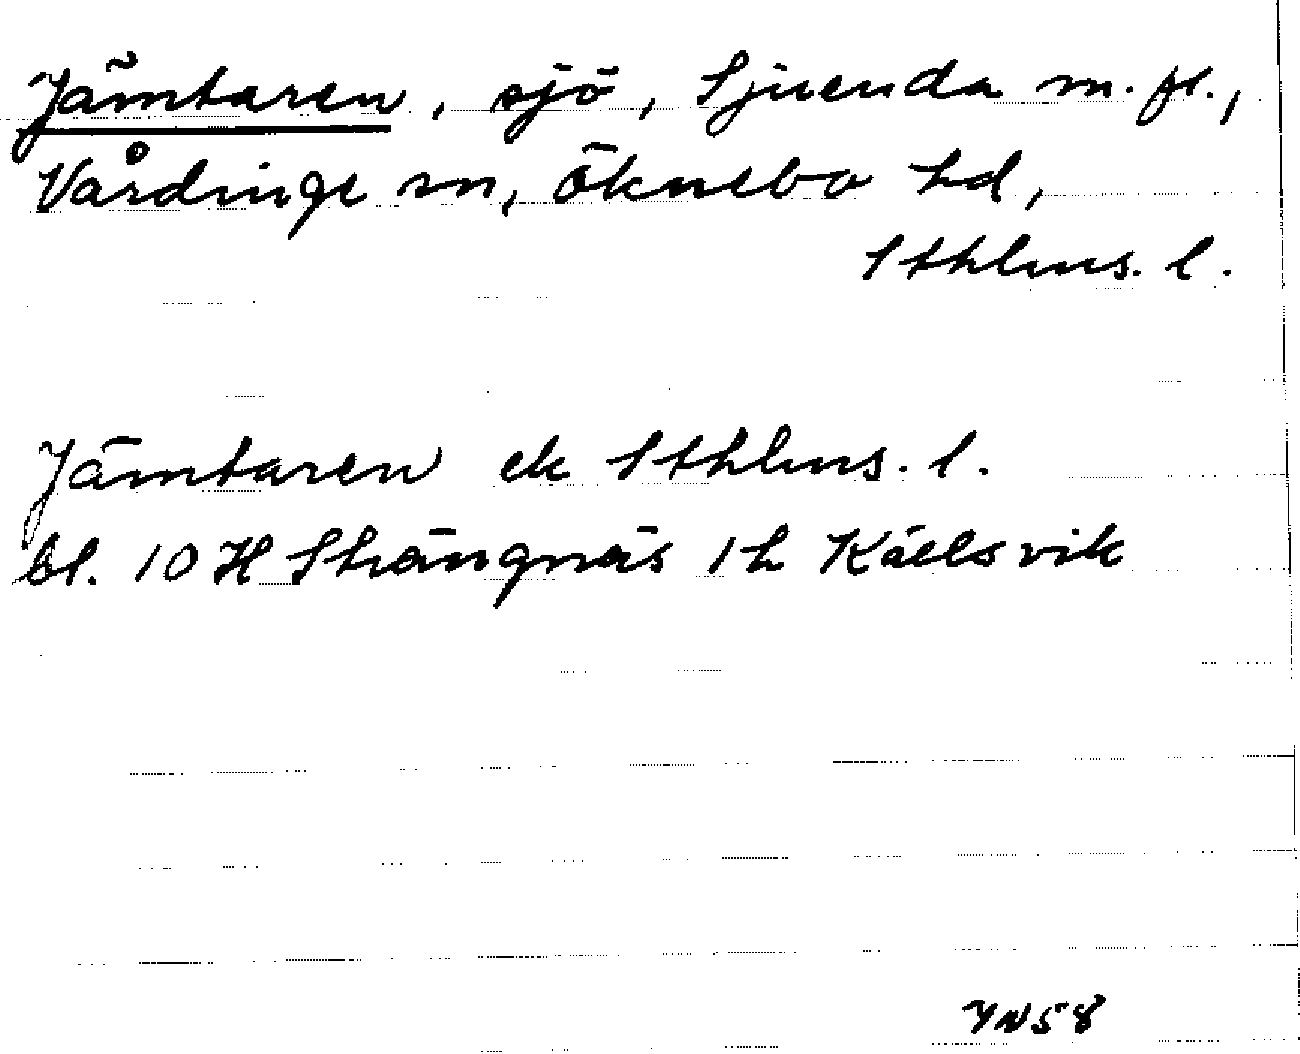 Jämtaren, sjö, Sjuenda m.fl.,
Vårdinge sn, Öknebo hd,
Sthlms. l.
Jämtaren ek Sthlms. l.
bl. 10 H Strängnäs 1 h Kåelsvik
YN58